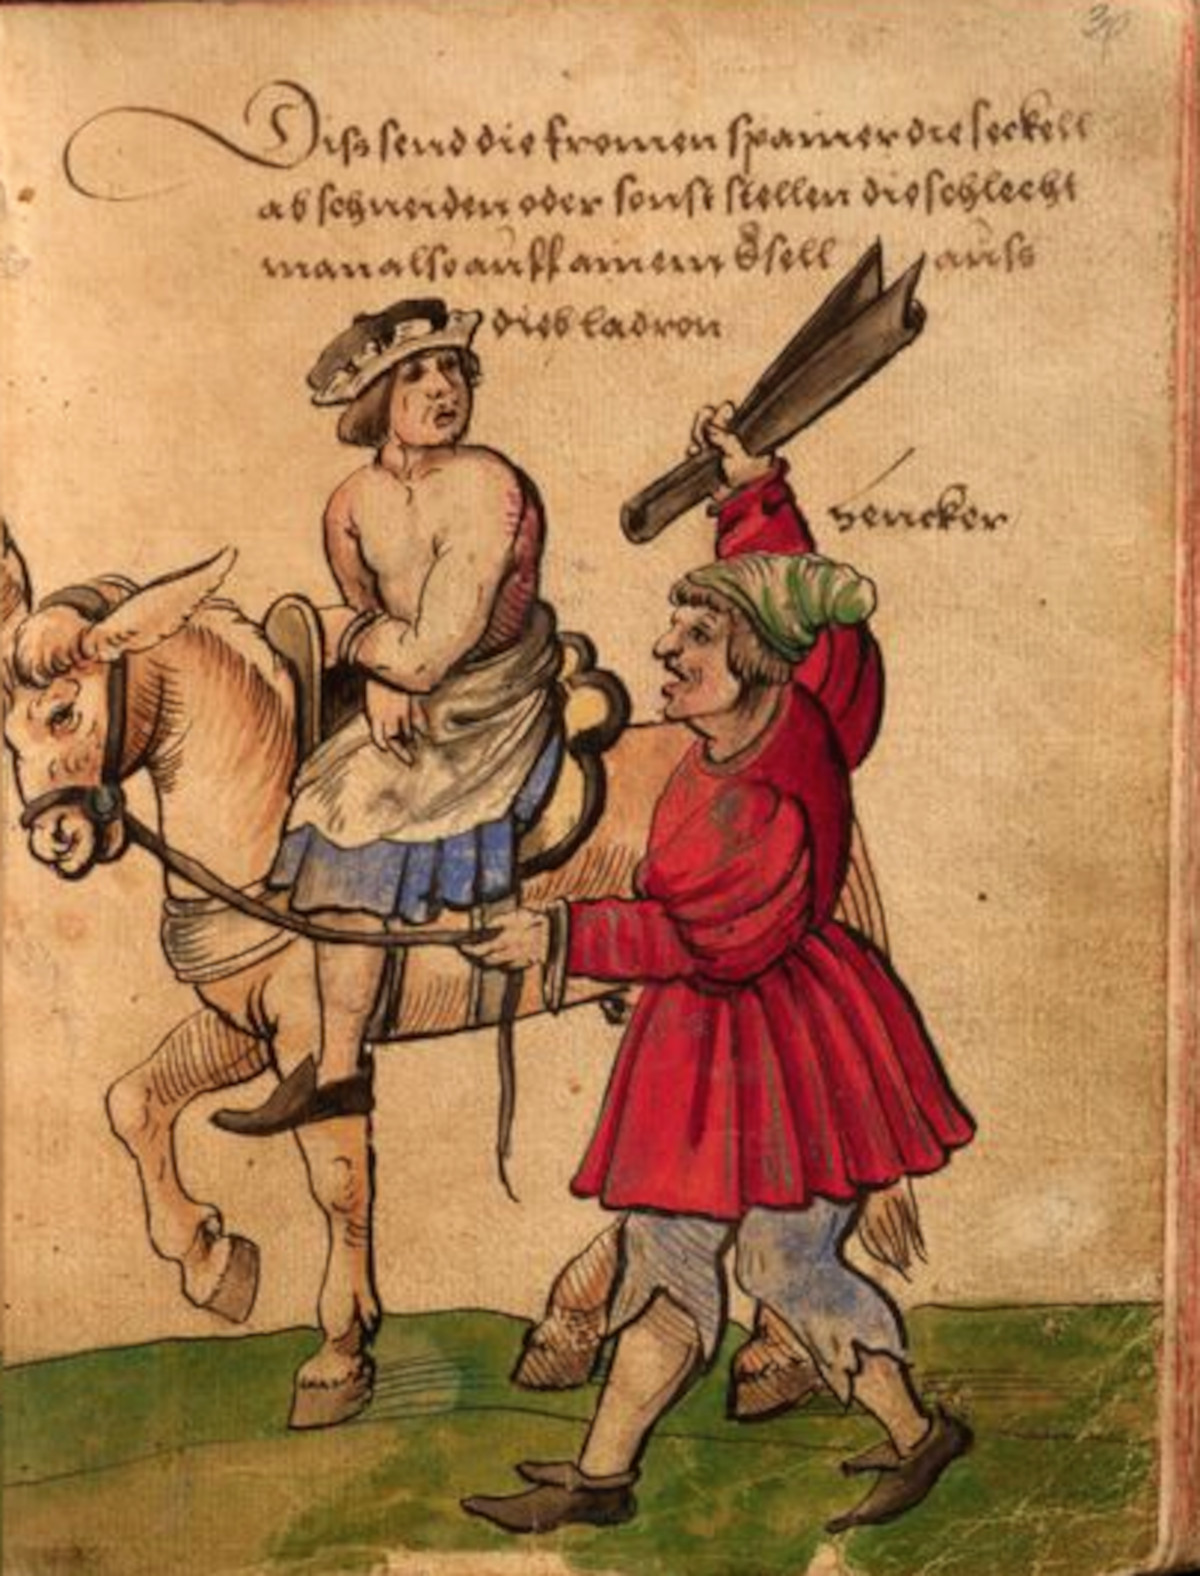 30
Diß send die fromen spanier die seckell
ab schneiden oder sonst stellen die schlecht
man also auff ainem Esell auss
dieb ladron
hencker